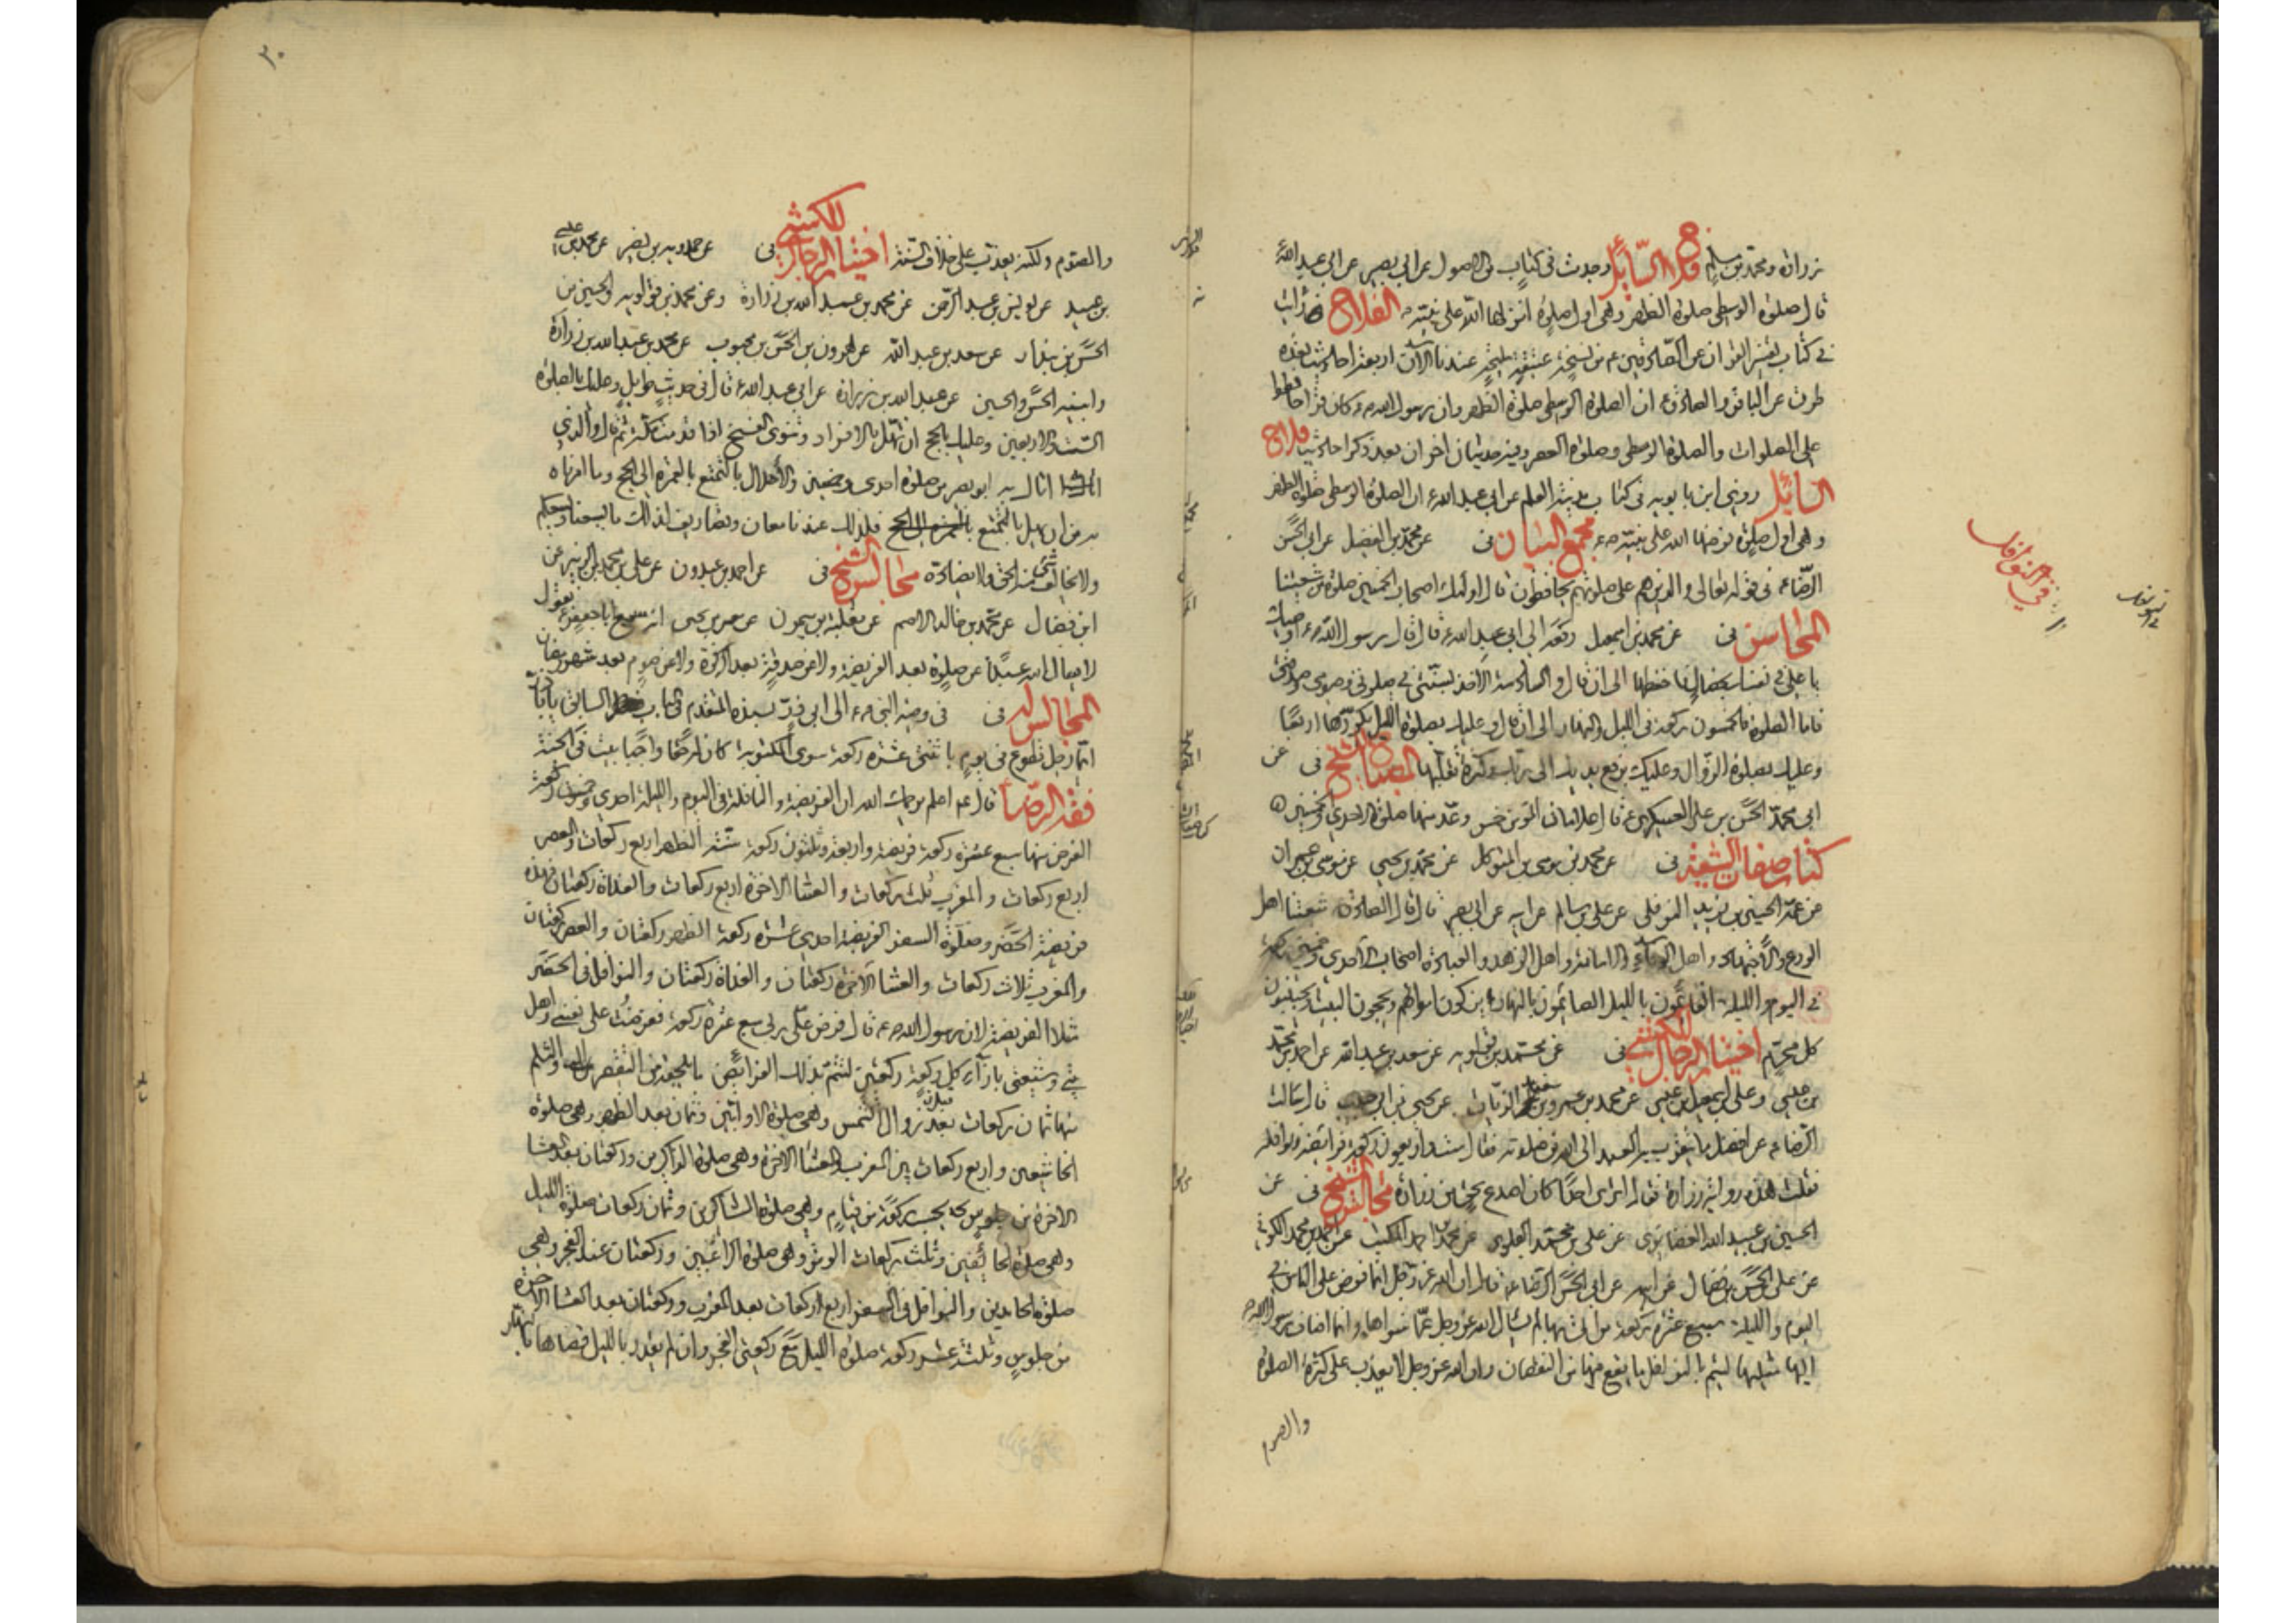 زرارة ومحمد بن مسلم فلاح السائل وجدت في كتاب من الاصول عن ابي بصير عن ابي عبد الله
قال صلوة الوسطى صلوة الظهر وهي اول صلوة انزلها الله على نبيه ص الفلاح
في كتاب تفسير القران عن الصادقين ع من نسخة عتيقة مليحة عندنا الان اربعة احاديث بعدة
طرق عن الباقر والصادق ع ان الصلوة الوسطى صلوة الظهر وان رسول الله ص وكان يقرأ حافظوا
على الصلوات والصلوة الوسطى وصلوة العصر وفيه حديثان اخران بعد ذكر احاديث فلاح
السائل روى ابن بابويه في كتاب مدينة العلم عن ابي عبد الله ع ان الصلوة الوسطى صلوة الظهر
وهي اول صلوة فرضها الله على نبيه ص مجمع البيان في عن محمد بن الفضيل عن ابي الحسن
الرضا ع في قوله تعالى والذين هم على صلوتهم يحافظون قال اولئك اصحاب الخمسين صلوة من شيعتنا
المحاسن في عن محمد بن اسمعيل رفعه الى ابي عبد الله ع قال قال رسول الله ص اوصيك
يا علي في نفسك بخصال فاحفظها الى ان قال والسادسة الاخذ بسنتي في صلوتي وصومي وصدقتي
فاما الصلوة فالخمسون ركعة في الليل والنهار الى ان قال وعليك بصلوة الليل يكررها اربعا
وعليك بصلوة الزوال وعليك برفع يديك الى ربك وكثرة تقلبها المصباح للشيخ في عن
ابي محمد الحسن بن علي العسكري ع قال علامات المؤمن خمس وعد منها صلوة الاحدى والخمسين
كتاب صفات الشيعة في عن محمد بن موسى بن المتوكل عن محمد بن يحيى عن موسى بن عمران
عن عمه الحسين بن يزيد النوفلي عن علي بن سالم عن ابيه عن ابي بصير قال قال الصادق ع شيعتنا اهل
الورع والاجتهاد واهل الوفاء والامانة واهل الزهد والعبادة اصحاب الاحدى وخمسين ركعة
في اليوم والليلة القائمون بالليل الصائمون بالنهار يزكون اموالهم ويحجون البيت ويجتنبون
كل محرم اختيار الرجال للكشي في عن محمد بن قولويه عن سعد بن عبد الله عن احمد بن محمد
بن عيسى وعلي بن اسمعيل بن عيسى عن محمد بن عمرو بن سعيد الزيات عن يحيى بن ابي حبيب قال سالت
الرضا ع عن افضل ما يتقرب به العبد الى الله من صلوته فقال ستة واربعون ركعة فرائضه ونوافله
فقلت هذه رواية زرارة فقال اترى احدا كان اصدع بحق من زرارة مجالس الشيخ في عن
الحسين بن عبيد الله الغضائري عن علي بن محمد العلوي عن محمد بن احمد المكتب عن احمد بن محمد الكوفي
عن علي بن الحسن بن فضال عن ابيه عن ابي الحسن الرضا ع قال ان الله عز وجل انما فرض على الناس في
اليوم والليلة سبع عشرة ركعة من اتى بها لم يسأل الله عز وجل عما سواها وانما اضاف رسول الله ص
اليها مثليها ليتم بالنوافل ما يقع فيها من النقصان وان الله عز وجل لا يعذب على كثرة الصلوة
والصوم
في النوافل
٣٠
والصوم ولكنه يعذب على خلاف السنة اختيار الرجال للكشي في عن حمدويه بن نصير عن محمد بن عيسى
بن عبيد عن يونس بن عبد الرحمن عن محمد بن عبد الله بن زرارة وعن محمد بن قولويه والحسين بن
الحسن بن بندار عن سعد بن عبد الله عن هرون بن الحسن بن محبوب عن محمد بن عبد الله بن زرارة
وابنيه الحسن والحسين عن عبد الله بن زرارة عن ابي عبد الله ع قال في حديث طويل وعليك بالصلوة
الستة والاربعين وعليك بالحج ان تهل بالافراد وتنوى الفسخ اذا قدمت مكة ثم قال والذي
اتاك به ابو بصير من صلوة احدى وخمسين والاهلال بالتمتع بالعمرة الى الحج وما امرناه
به من ان يهل بالتمتع فلذلك عندنا معان وتصاريف لذلك ما يسعنا ويسعكم
ولا يخالف شيء منه الحق ولا يضاده مجالس الشيخ في عن احمد بن عبدون عن علي بن محمد بن الزبير عن
ابن فضال عن محمد بن خالد الاصم عن ثعلبة بن ميمون عن معمر بن يحيى انه سمع ابا جعفر ع يقول
لا يسال الله عبدا عن صلوة بعد الفريضة ولا عن صدقة بعد الزكوة ولا عن صوم بعد شهر رمضان
المجالس له في وصية النبي ص الى ابي ذر بسنده المتقدم في السابق يا اباذر
ايما رجل تطوع في يوم باثنتي عشرة ركعة سوى المكتوبة كان له حقا واجبا بيت في الجنة
فقه الرضا قال ع اعلم يرحمك الله ان الفريضة والنافلة في اليوم والليلة احدى وخمسون ركعة
الفرض منها سبع عشرة ركعة فريضة واربعة وثلثون ركعة سنة الظهر اربع ركعات والعصر
اربع ركعات والمغرب ثلث ركعات والعشا الاخرة اربع ركعات والغداة ركعتان فهذه
فريضة الحضر وصلوة السفر الفريضة احدى عشرة ركعة الظهر ركعتان والعصر ركعتان
والمغرب ثلاث ركعات والعشا الاخرة ركعتان والغداة ركعتان والنوافل في الحضر
مثلا الفريضة لان رسول الله ص قال فرض علي ربي سبع عشرة ركعة ففرضت على نفسي واهل
بيتي وشيعتي بازآء كل ركعة ركعتين لتتم بذلك الفرائض ما يلحقه من التقصير والثلم
منها ثمان ركعات قبل زوال الشمس وهي صلوة الاوابين وثمان بعد الظهر وهي صلوة
الخاشعين واربع ركعات بين المغرب والعشاء الاخرة وهي صلوة الذاكرين وركعتان بعد العشا
الاخرة من جلوس تحسب بركعة من قيام وهي صلوة الشاكرين وثمان ركعات صلوة الليل
وهي صلوة الخائفين وثلث ركعات الوتر وهي صلوة الراغبين وركعتان عند الفجر وهي
صلوة الحامدين والنوافل في السفر اربع ركعات بعد المغرب وركعتان بعد العشا الاخرة
من جلوس وثلث عشر ركعة صلوة الليل مع ركعتي الفجر وان لم يقدر بالليل قضاها بالنهار